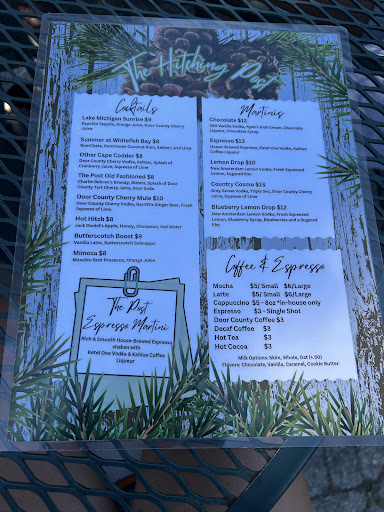 The Hitching Post
Cocktails
Lake Michigan Sunrise $9
Espolon Tequila, Orange Juice, Door County Cherry
Juice
Summer at Whitefish Bay $8
RumChata, Parrot Bay Coconut Rum, Malibu, and Lime
Other Cape Codder $8
Door County Cherry Vodka, Seltzer, Splash of
Cranberry Juice, Squeeze of Lime
The Post Old Fashioned $8
Charlie Behren's Brandy, Bitters, Splash of Door
County Tart Cherry Juice, Sour Soda
Door County Cherry Mule $10
Door County Cherry Vodka, Barritt's Ginger Beer, Fresh
Squeeze of Lime
Hot Hitch $8
Jack Daniel's Apple, Honey, Cinnamon, Hot Water
Butterscotch Boost $9
Vanilla Latte, Butterscotch Schnapps
Mimosa $8
Maschio Brut Prosecco, Orange Juice
The Post
Espresso Martini
Rich & Smooth House-Brewed Espresso
shaken with
Ketel One Vodka & Kahlua Coffee
Liqueur
Martinis
Chocolate $12
360 Vanilla Vodka, Ryan's Irish Cream, Chocolate
Liqueur, Chocolate Syrup
Espresso $13
House-Brewed Espresso, Ketel One Vodka, Kahlua
Coffee Liqueur
Lemon Drop $10
New Amsterdam Lemon Vodka, Fresh Squeezed
Lemon, Sugared Rim
Country Cosmo $13
Grey Goose Vodka, Triple Sec, Door County Cherry
Juice, Squeeze of Lime
Blueberry Lemon Drop $12
New Amsterdam Lemon Vodka, Fresh Squeezed
Lemon, Blueberry Syrup, Blueberries and a Sugared
Rim
Coffee & Espresso
Mocha $5/ Small $6/Large
Latte $5/ Small $6/Large
Cappuccino $5 - 8oz *in-house only
Espresso $3 - Single Shot
Door County Coffee $3
Decaf Coffee $3
Hot Tea $3
Hot Cocoa $3
Milk Options: Skim, Whole, Oat (+.50)
Flavors: Chocolate, Vanilla, Caramel, Cookie Butter